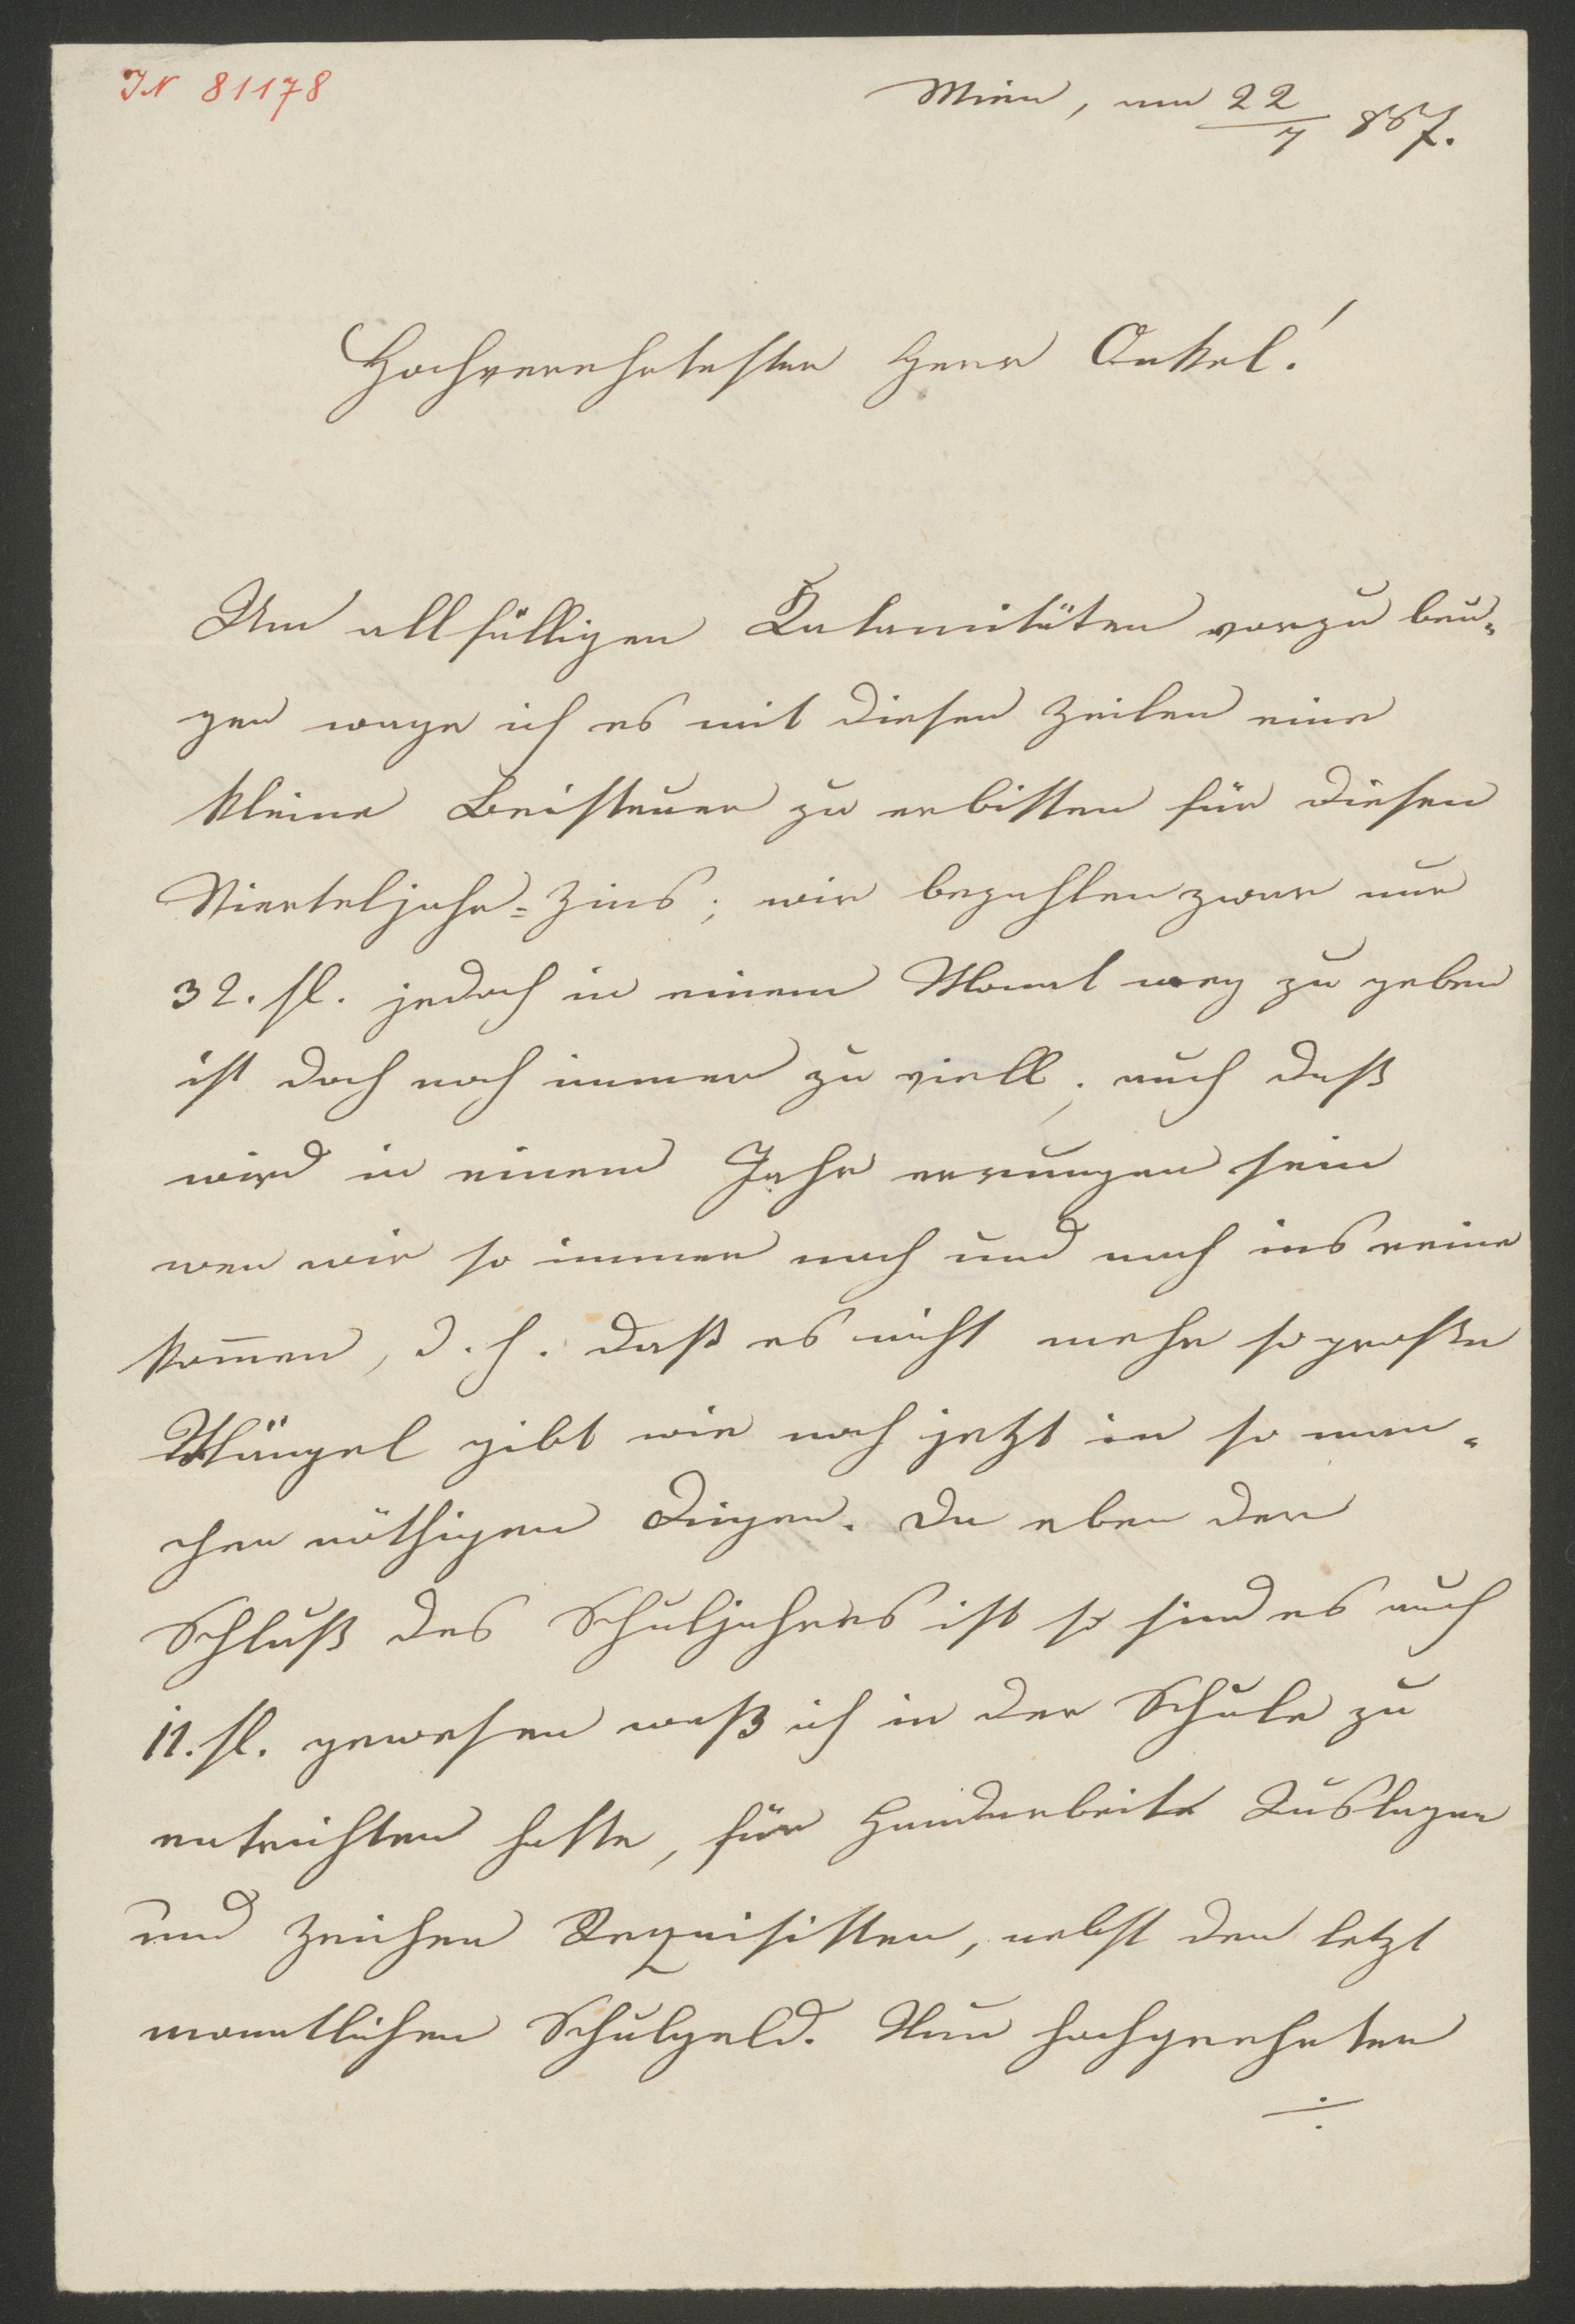 IN 81178
Wien, am 22/7 867.
Hochverehrtester Herr Onkel!
Um allfälligen Kalamitäten vorzu beu=
gen wage ich es mit diesen Zeilen eine
kleine Beisteuer zu erbitten für diesen
Vierteljahr=Zins; wir bezahlen zwar nur
32. fl. jedoch in einem Monat weg zu geben
ist doch noch immer zu viell, auch daß
wird in einem Jahr errungen sein
wen wir so immer nach und nach ins reine
kom̄en, d. h. daß es nicht mehr so große
Mängel gibt wie noch jetzt in so man=
chen nöthigen Dingen. Da eben der
Schluß des Schuljahres ist so sind es auch
11. fl. gewesen waß ich in der Schule zu
entrichten hatte, für Handarbeits Auslagen
und Zeichen Requisitten, nebst den letzt
monatlichen Schulgeld. Nun hochgeehrter
÷